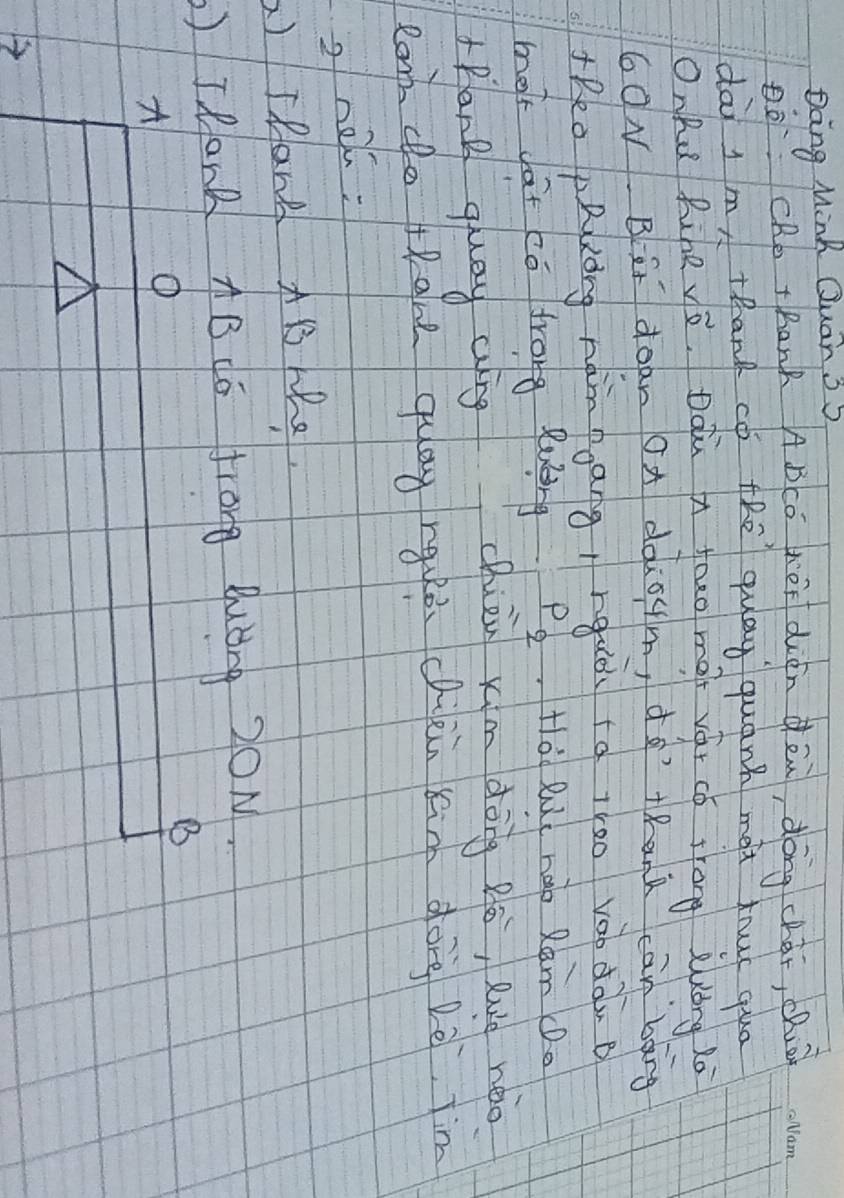 Đặng Minh Quân 35
Đề: Cho thanh AB có tiết diện đều, đồng chất, chiều
dài 1 m, thanh có thể quay quanh một trục qua
O như hình vẽ. Đầu A treo một vật có trọng lượng là
60N. Biết đoạn OA dài 0,4m, để thanh cân bằng
theo phương nằm ngang, người ta treo vào đầu B
một vật có trọng lượng P2. Hỏi lực nào làm cho
thanh quay cùng chiều kim đồng hồ, lực nào
làm cho thanh quay ngược chiều kim đồng hồ. Tìm
2 nếu:
a) Thanh AB nhẹ.
b) Thanh AB có trọng lượng 20N.
A O B
Nam